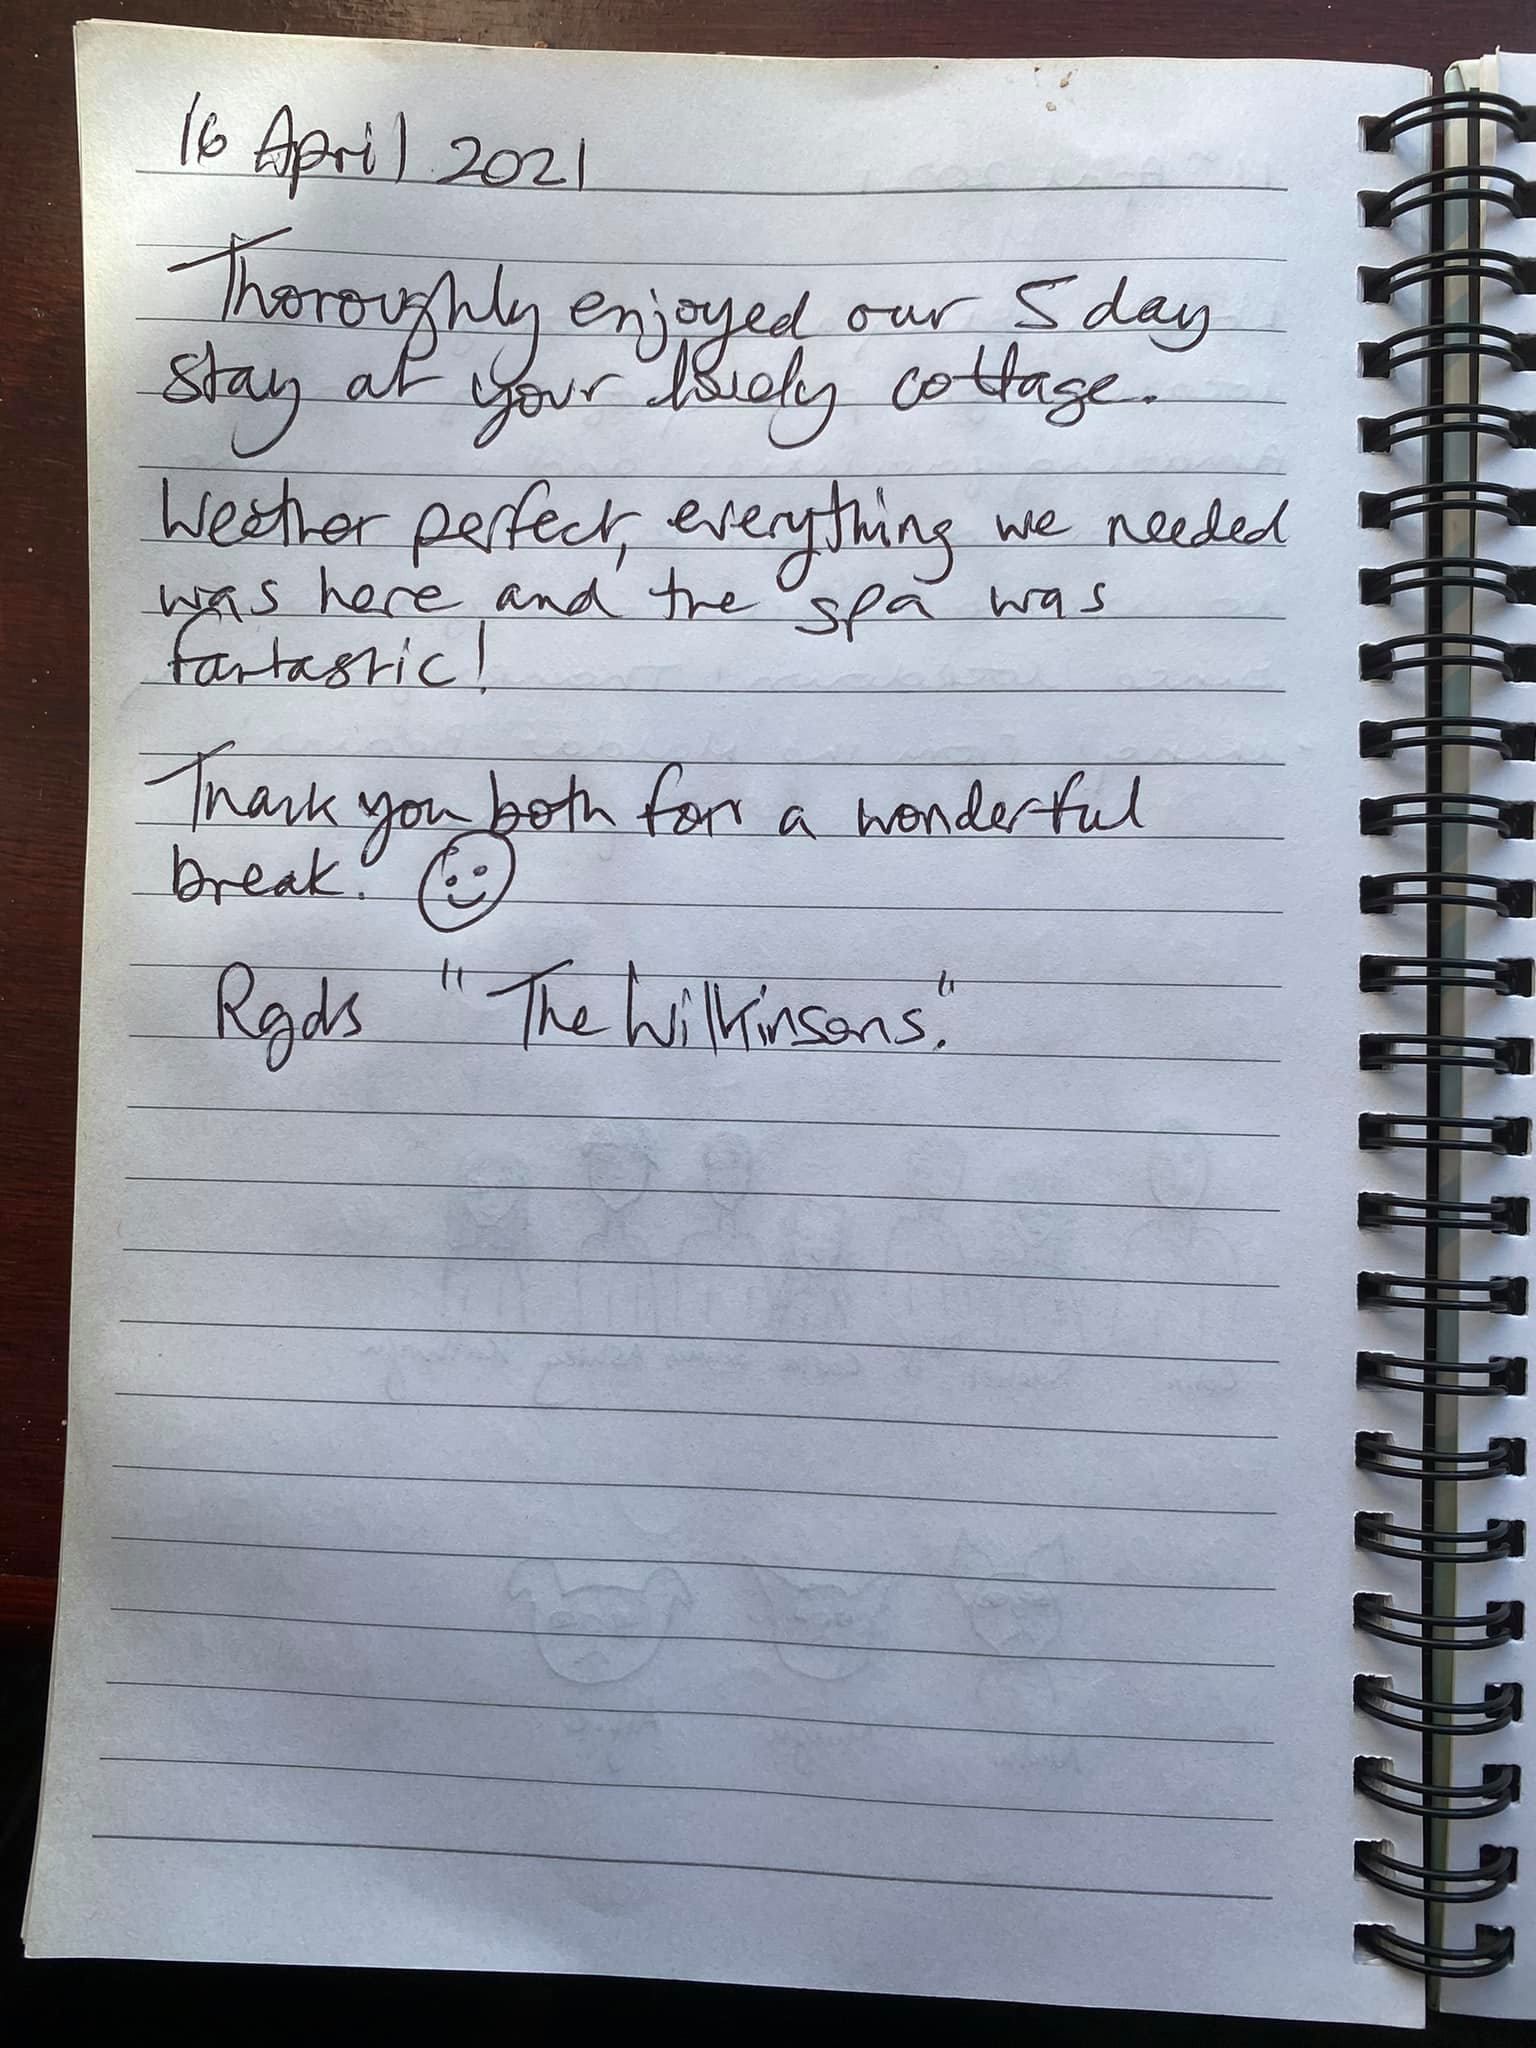 16 April 2021
Thoroughly enjoyed our 5 day
stay at your lovely cottage.
Weather perfect, everything we needed
was here and the spa was
fantastic!
Thank you both for a wonderful
break.
Rgds "The Wilkinsons."